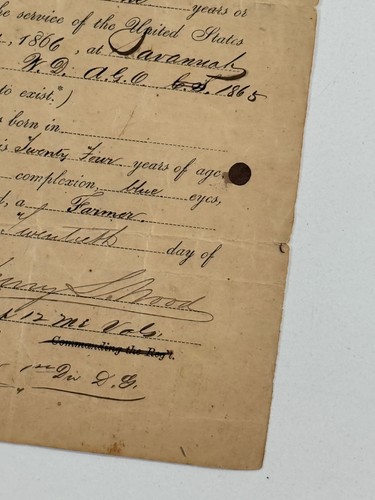 years or
the service of the United States
, 1866, at Savannah
W. D. A.G.O. 1865
to exist.")
born in
is Twenty Four years of age,
complexion, blue eyes,
, a Farmer.
Twentieth day of
Wood
12 Me Vols
Commanding the Reg't.
1st Div D. G.